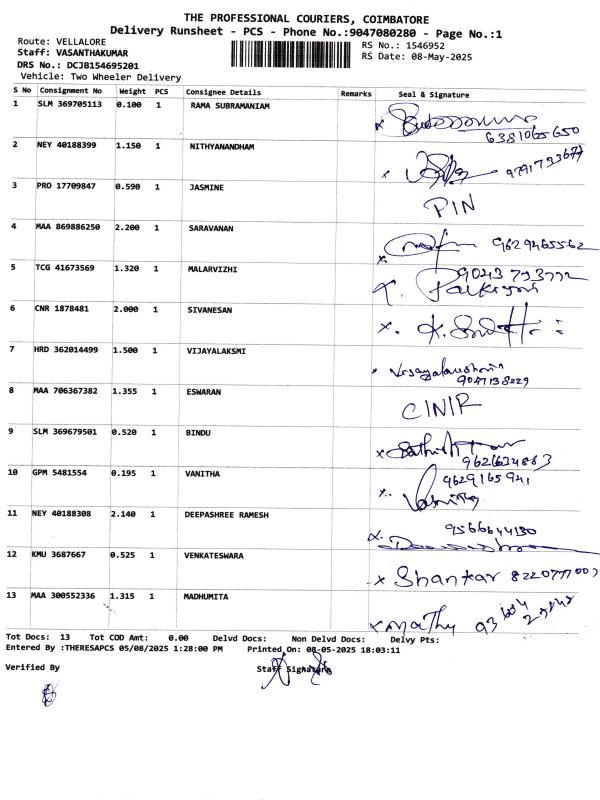 THE PROFESSIONAL COURIERS, COIMBATORE
Delivery Runsheet - PCS - Phone No.:9047080280 - Page No.:1
Route: VELLALORE
RS No.: 1546952
Staff: VASANTHAKUMAR
RS Date: 08-May-2025
DRS No.: DCJB154695201
Vehicle: Two Wheeler Delivery
S No Consignment No Weight PCS Consignee Details Remarks Seal & Signature
1 SLM 369705113 0.100 1 RAMA SUBRAMANIAM
6381065650
2 NEY 40188399 1.150 1 NITHYANANDHAM
3 PRO 17709847 0.590 1 JASMINE
PIN
4 MAA 869886250 2.200 1 SARAVANAN
9629465562
5 TCG 41673569 1.320 1 MALARVIZHI
6 CNR 1878481 2.000 1 SIVANESAN
7 HRD 362014499 1.500 1 VIJAYALAKSMI
9047138229
8 MAA 706367382 1.355 1 ESWARAN
CINIR
9 SLM 369679501 0.520 1 BINDU
10 GPM 5481554 0.195 1 VANITHA
9629165941
Vanitha
11 NEY 40188308 2.140 1 DEEPASHREE RAMESH
12 KMU 3687667 0.525 1 VENKATESWARA
x Shankar
13 MAA 300552336 1.315 1 MADHUMITA
x Mathy
Tot Docs: 13 Tot COD Amt: 0.00 Delvd Docs: Non Delvd Docs: Delvy Pts:
Entered By :THERESAPCS 05/08/2025 1:28:00 PM Printed On: 08-05-2025 18:03:11
Verified By Staff Signature